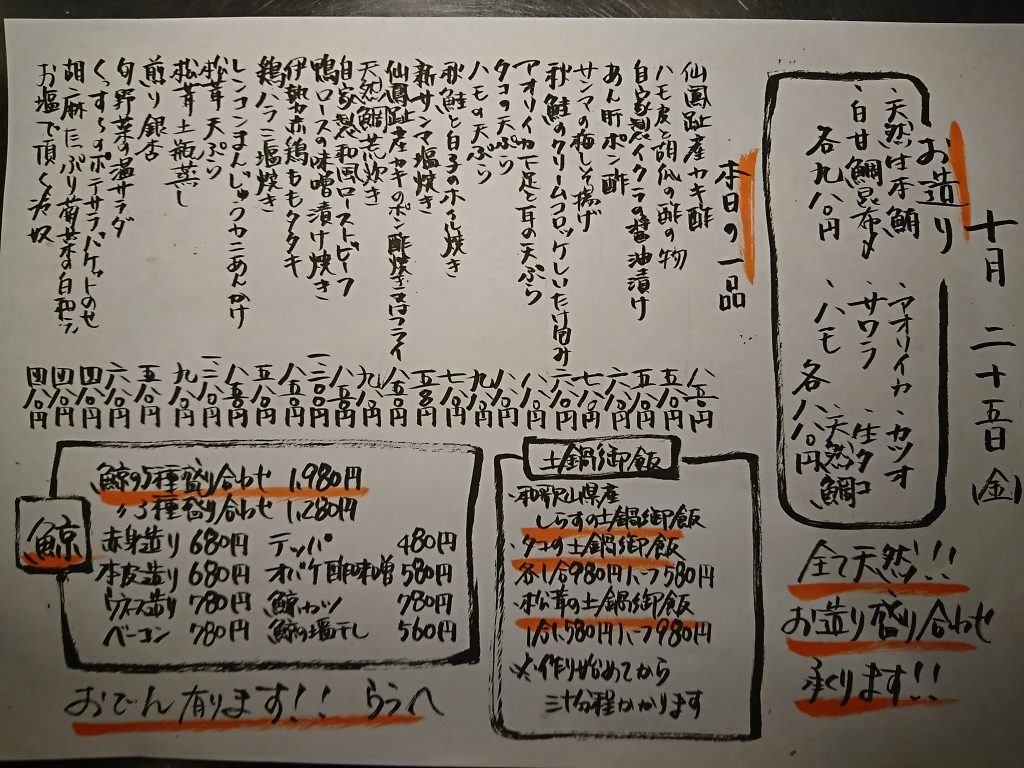 十月 二十五日 (金)
お造り
・天然生本鮪
・白甘鯛昆布〆
各九八〇円
・アオリイカ ・カツオ
・サワラ ・生タコ
・ハモ ・天然鯛
各八八〇円
全て天然!!
お造り盛り合わせ
承ります!!
本日の一品
仙鳳趾産カキ酢 八五〇円
ハモ皮と胡瓜の酢の物 五八〇円
自家製イクラの醤油漬け
あん肝ポン酢
サンマの梅しそ揚げ
秋鮭のクリームコロッケしいたけ包み
アオリイカ下足と耳の天ぷら
タコの天ぷら
ハモの天ぷら
秋鮭と白子のホイル焼き
新サンマ塩焼き
仙鳳趾産カキのポン酢焼き又はフライ
天然鯛荒炊き
自家製和風ローストビーフ
鴨ロースの味噌漬け焼き
伊勢赤鶏ももタタキ
鶏ハラミ塩焼き
レンコンまんじゅうカニあんかけ
松茸天ぷら
松茸土瓶蒸し
煎り銀杏
旬野菜の温サラダ
くんすけのポテサラバケットのせ
胡麻たっぷり菊菜の白和え
お塩で頂く冷奴
土鍋御飯
・和歌山県産
しらすの土鍋御飯
・タコの土鍋御飯
各1合980円ハーフ580円
・松茸の土鍋御飯
1合1,580円ハーフ980円
※作り始めてから
三十分程かかります
鯨
鯨の5種盛り合わせ 1,980円
〃3種盛り合わせ 1,280円
赤身造り 680円 テッパ 480円
本皮造り 680円 オバケ酢味噌 580円
ウネス造り 780円 鯨カツ 780円
ベーコン 780円 鯨の塩干し 560円
おでん有ります!! うらへ